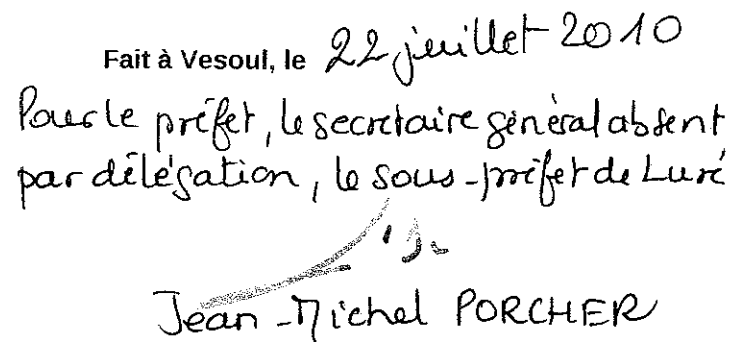 Fait à Vesoul, le 22 juillet 2010
Pour le préfet, le secrétaire général absent
par délégation, le sous-préfet de Lure
Jean-Michel PORCHER